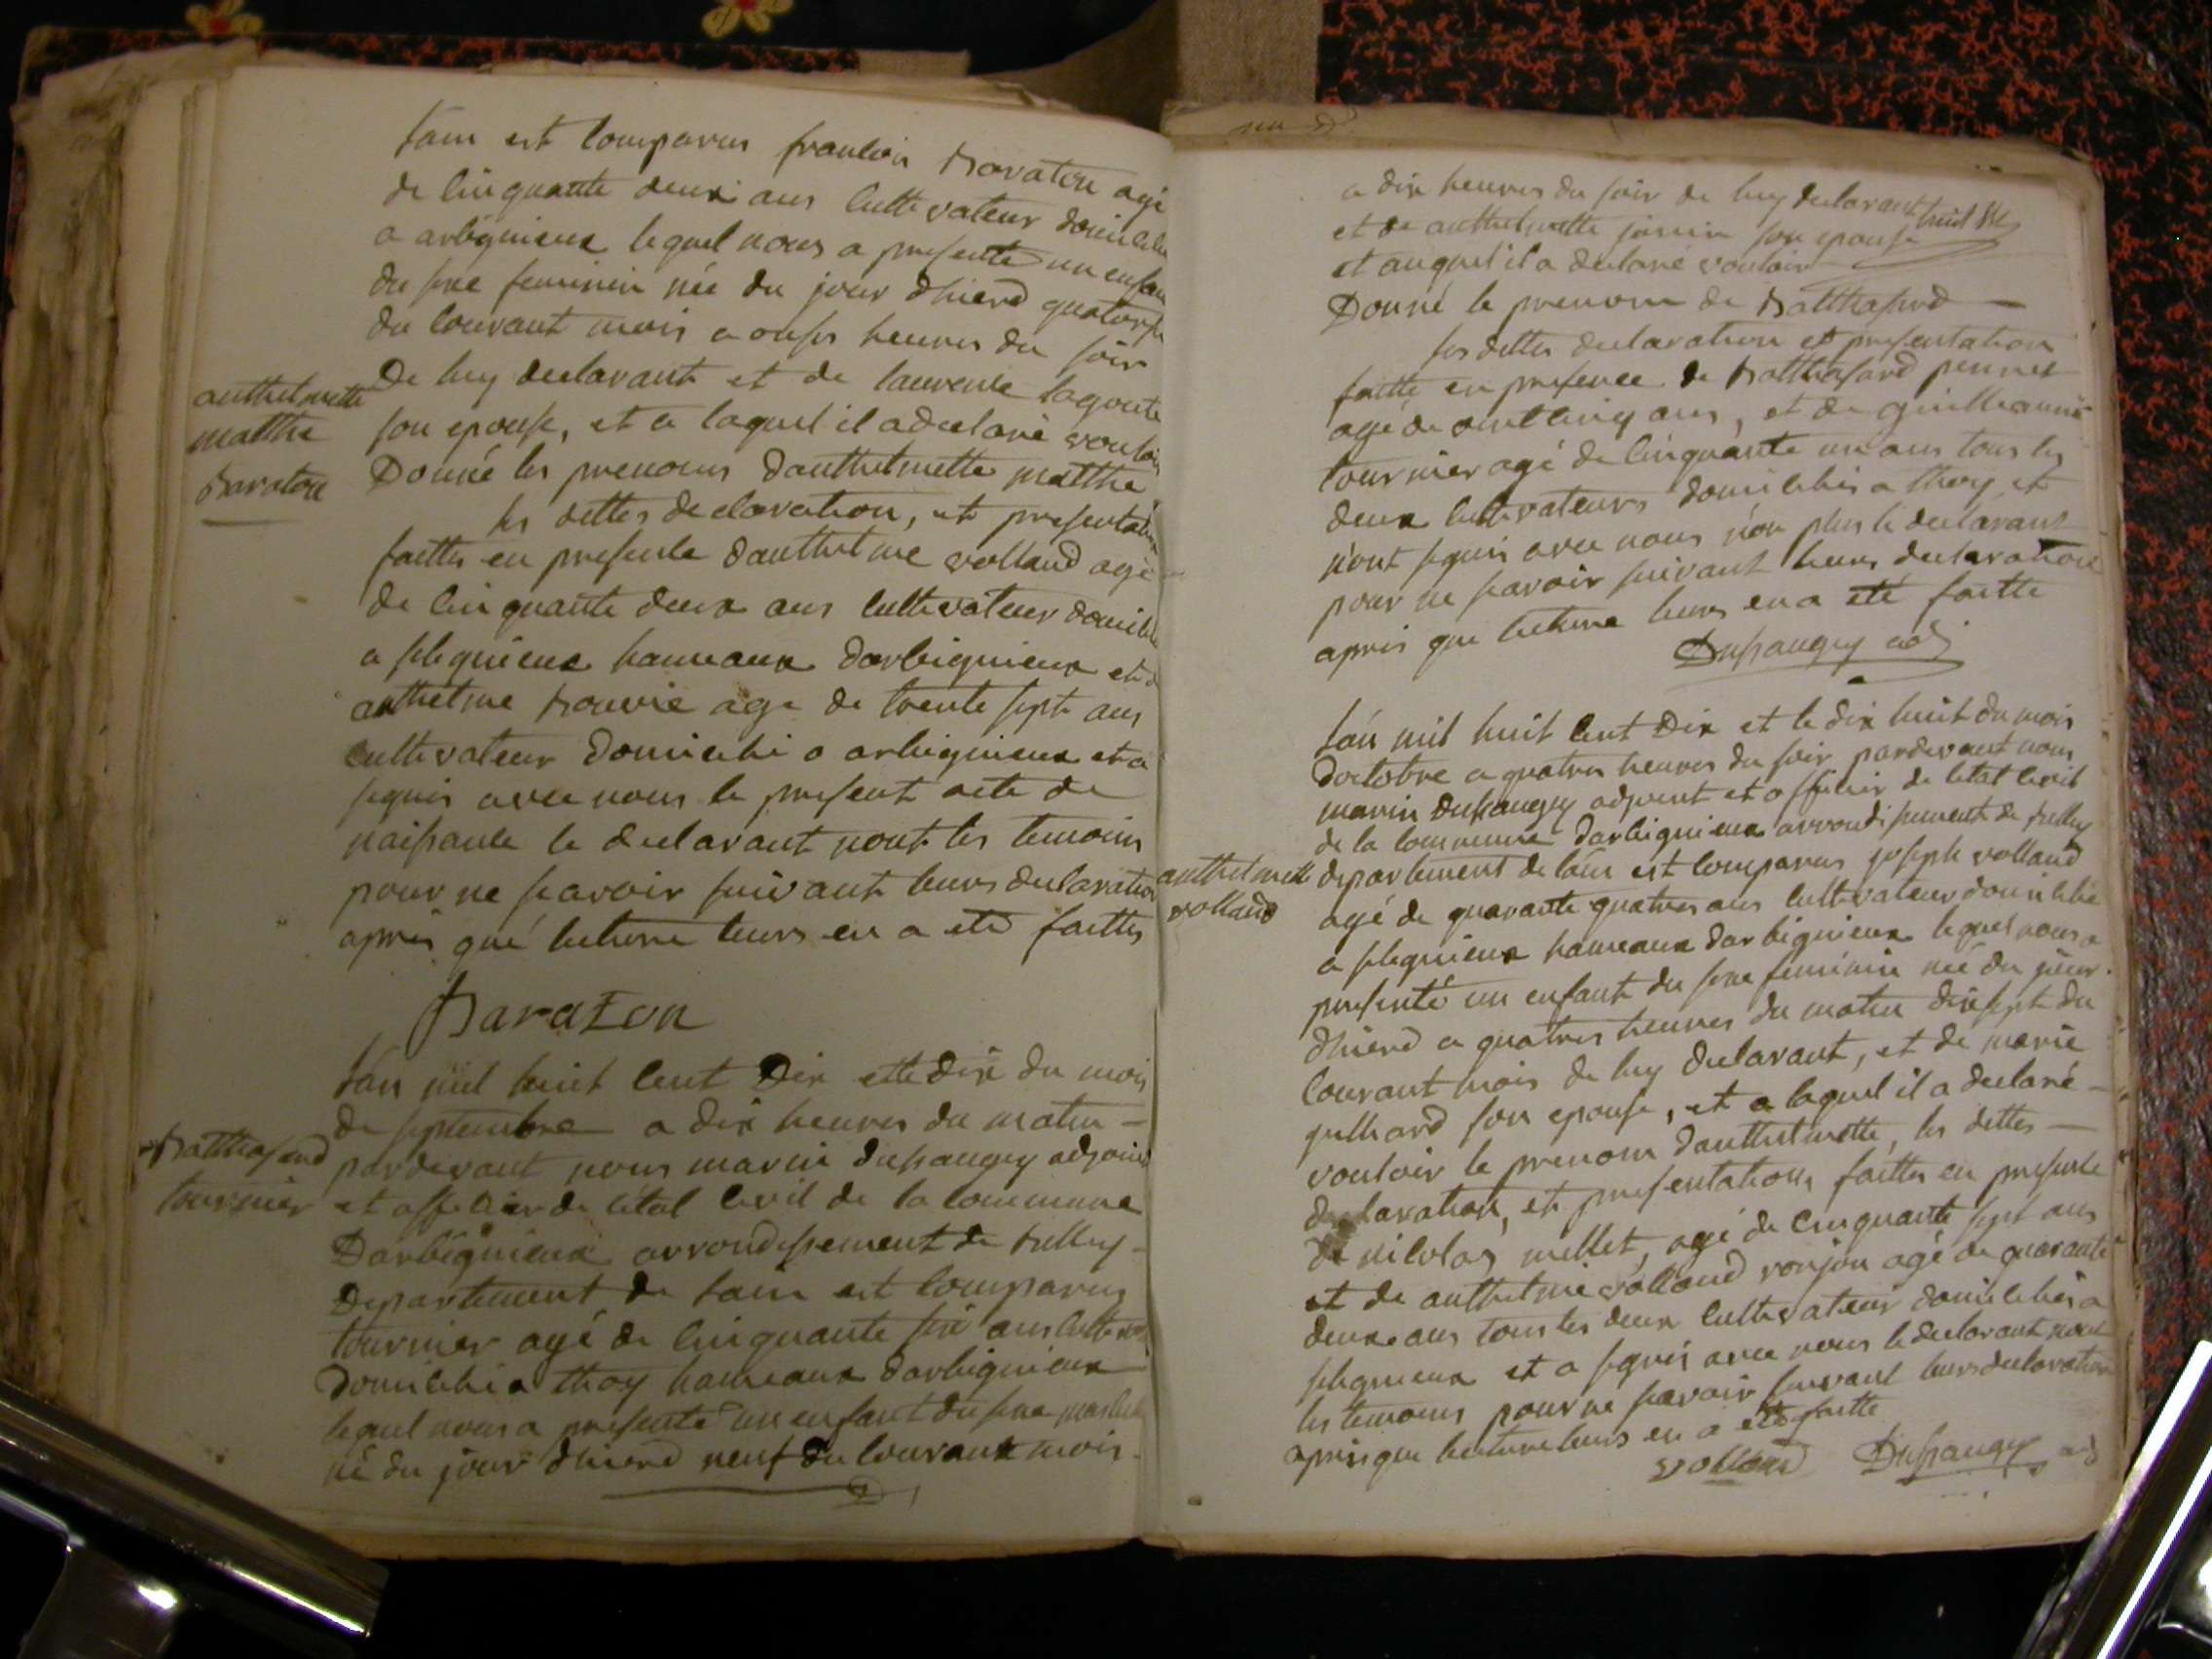 lain est comparus francois baraton agé
de cinquante deux ans cultivateur domicilié
a arbignieux lequel nous a presenté un enfan
du sexe feminin née du jour dhierd quatorze
du courant mois a onses heures du soir
De luy declarant et de laurence lagoute
son epouse, et a laquel il a declaré vouloir
Donnée les prenoms danthelmette matthe
les dittes declaration, et presentation
faittes en presence danthelme volland agé
de cinquante deux ans cultivateur domicilié
a slegnieux hameaux darbignieux et d
anthelme bouvié age de trente sept ans
cultivateur domicilié a arbignieux et a
signés avec nous le present acte de
naissance le declarant nont les temoins
pour ne scavoir suivant leurs declaration
après que lecture leurs en a eté faittes
Baraton
anthelmette
matthe
baraton
lan mil huit cent Dix et le dix du mois
de septembre a dix heures du matin
pardevant nous marin dupraugey adjoint
et officier de létat civil de la commune
Darbignieux arrondissement de belley
Departement de lain est comparus
tournier agé de cinquante six ans cultivat
domicilié a thoy hameaux darbignieux
lequel nous a presenté un enfant du sexe masculin
né du jour dhierd neuf du courant mois
Balthasard
tournier
a dix heures du soir de luy declarant
et de anthelmette janin son epouse
et auquel il a declaré vouloir
Donné le prenom de balthasard
les dittes declaration et presentation
faitte en presence de balthasard pennet
agé de cinq ans, et de guilleaume
tournier agé de cinquante un ans tous les
deux cultivateurs domiciliés a thoy et
n'ont signés avec nous non plus le declarant
pour ne scavoir suivant leurs declaration
apres que lecture leurs en a eté faitte
Dupraugey adj
lan mil huit cent Dix et le dix huit du mois
doctobre a quatres heures du soir pardevant nous
marin dupraugey adjoint et officier de létat civil
de la commune darbignieux arrondissement de belley
departement de lain est comparus joseph volland
agé de quarante quatres ans cultivateur domicilié
a slegnieux hameaux darbignieux lequel nous a
presenté un enfant du sexe feminin née du jour
dhierd a quatres heures du matin dixsept du
courant mois de luy declarant, et de marie
gulliard son epouse, et a laquel il a declaré
vouloir le prenom danthelmette, les dittes
declaration, et presentations faittes en presence
de nicolas millet, agé de cinquante sept ans
et de anthelme volland ronjon agé de quarante
deux ans tous les deux cultivateur domiciliés a
slegnieux et a signés avec nous le declarant nont
les temoins pour ne scavoir suivant leurs declaration
apres que lecture leurs en a eté faitte
volland Dupraugey adj
anthelmette
volland